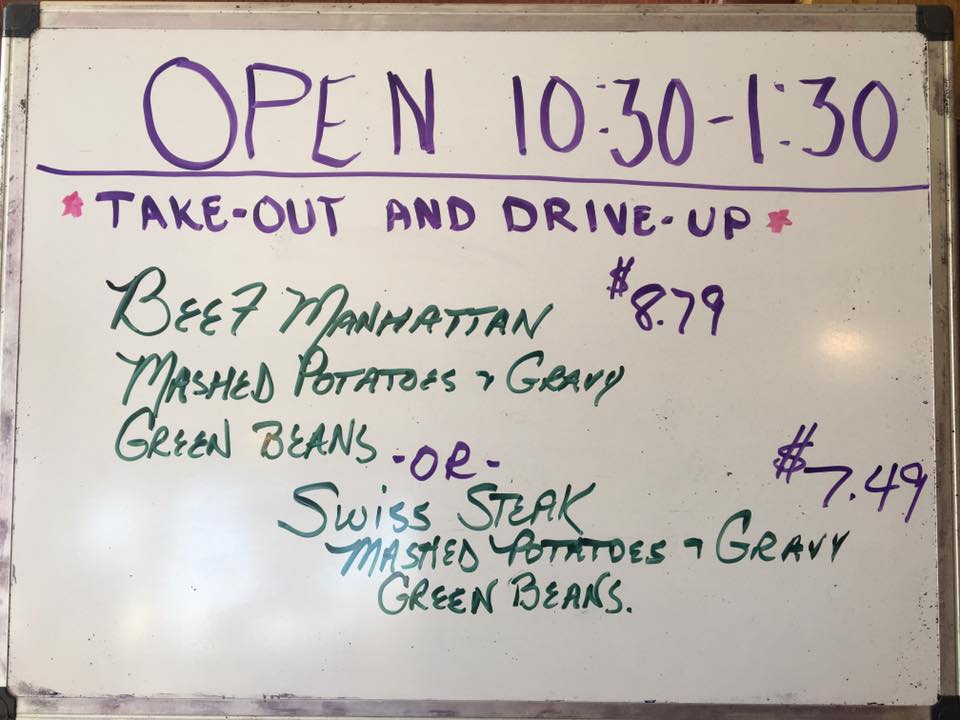 OPEN 10:30-1:30
TAKE-OUT AND DRIVE-UP
BEEF MANHATTAN $8.79
MASHED POTATOES & GRAVY
GREEN BEANS
-OR-
SWISS STEAK $7.49
MASHED POTATOES & GRAVY
GREEN BEANS.